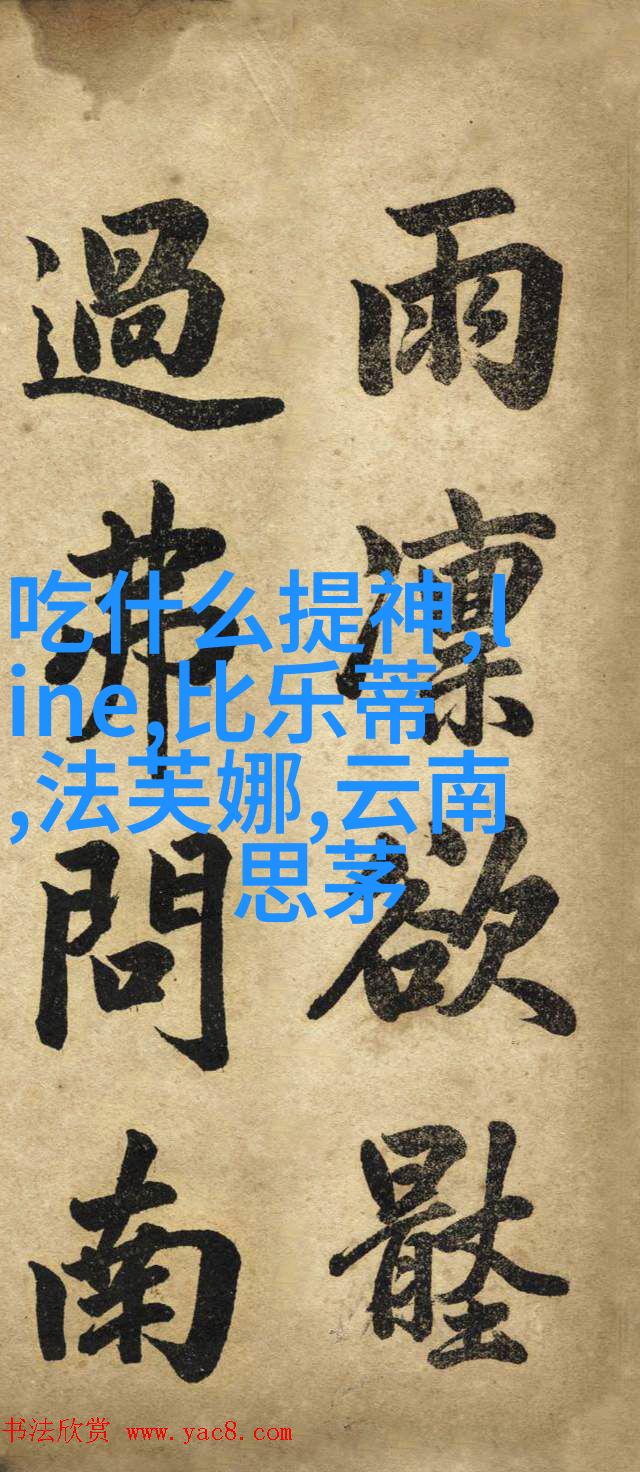 雨凛欲
過問南
吃什么提神,l
ine,比乐蒂
,法芙娜,云南
思茅
书法欣赏 www.yac8.com